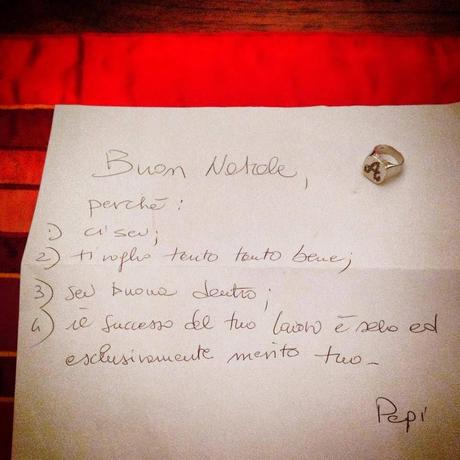 Buon Natale,
perché:
1) ci sei;
2) ti voglio tanto tanto bene;
3) sei buona dentro;
4) il successo del tuo lavoro è solo ed
esclusivamente merito tuo.
Pepi